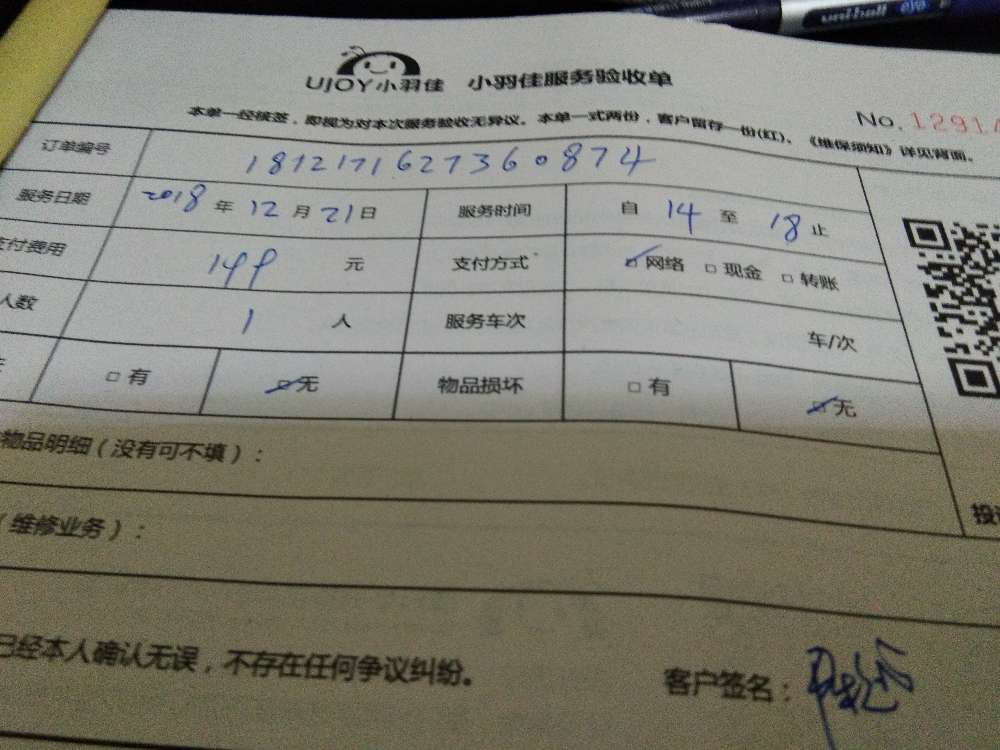 uni-ball eye
UJOY小羽佳 小羽佳服务验收单
No.1291
本单一经核签，即视为对本次服务验收无异议。本单一式两份，客户留存一份(红)、《维保须知》详见背面。
订单编号 1812171627360874
服务日期 2018 年 12 月 21 日 服务时间 自 14 至 18 止
支付费用 199 元 支付方式 ☑网络 □现金 □转账
人数 1 人 服务车次 车/次
□有 ☑无 物品损坏 □有 ☑无
物品明细（没有可不填）：
（维修业务）：
已经本人确认无误，不存在任何争议纠纷。 客户签名：